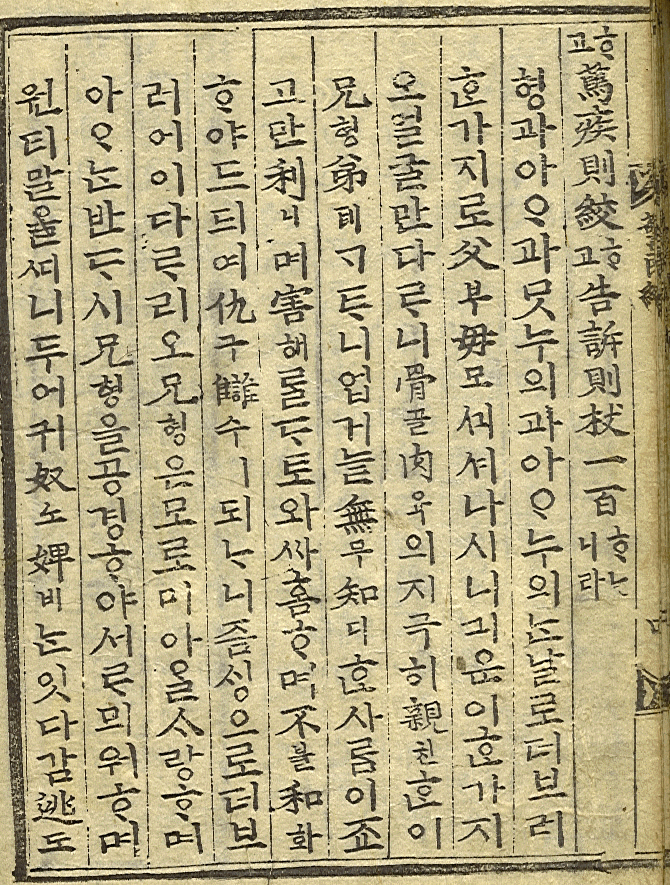 ᄒᆞ고篤疾則絞ᄒᆞ고告訴則杖一百ᄒᆞᄂᆞ니라
형과아ᄋᆞ과ᄆᆞᆺ누의과아ᄋᆞ누의ᄂᆞᆫ날로더브러
ᄒᆞᆫ가지로父부母모ᄭᅴ셔나시니긔운이ᄒᆞᆫ가지
오얼굴만다ᄅᆞ니骨골肉육의지극히親친ᄒᆞᆫ이
兄형弟뎨ᄀᆞᄐᆞ니업거ᄂᆞᆯ無무知디ᄒᆞᆫ사ᄅᆞᆷ이죠
고만利니며害해ᄅᆞᆯᄃᆞ토와싸홈ᄒᆞ며不블和화
ᄒᆞ야드듸여仇구讎수ㅣ되ᄂᆞ니즘ᄉᆡᆼ으로더브
러어이다ᄅᆞ리오兄형은모로미아ᄋᆞᆯ사랑ᄒᆞ며
아ᄋᆞᄂᆞᆫ반ᄃᆞ시兄형을공경ᄒᆞ야서ᄅᆞ믜워ᄒᆞ며
원티말올ᄯᅵ니두어귀奴노婢비ᄂᆞᆫ잇다감逃도